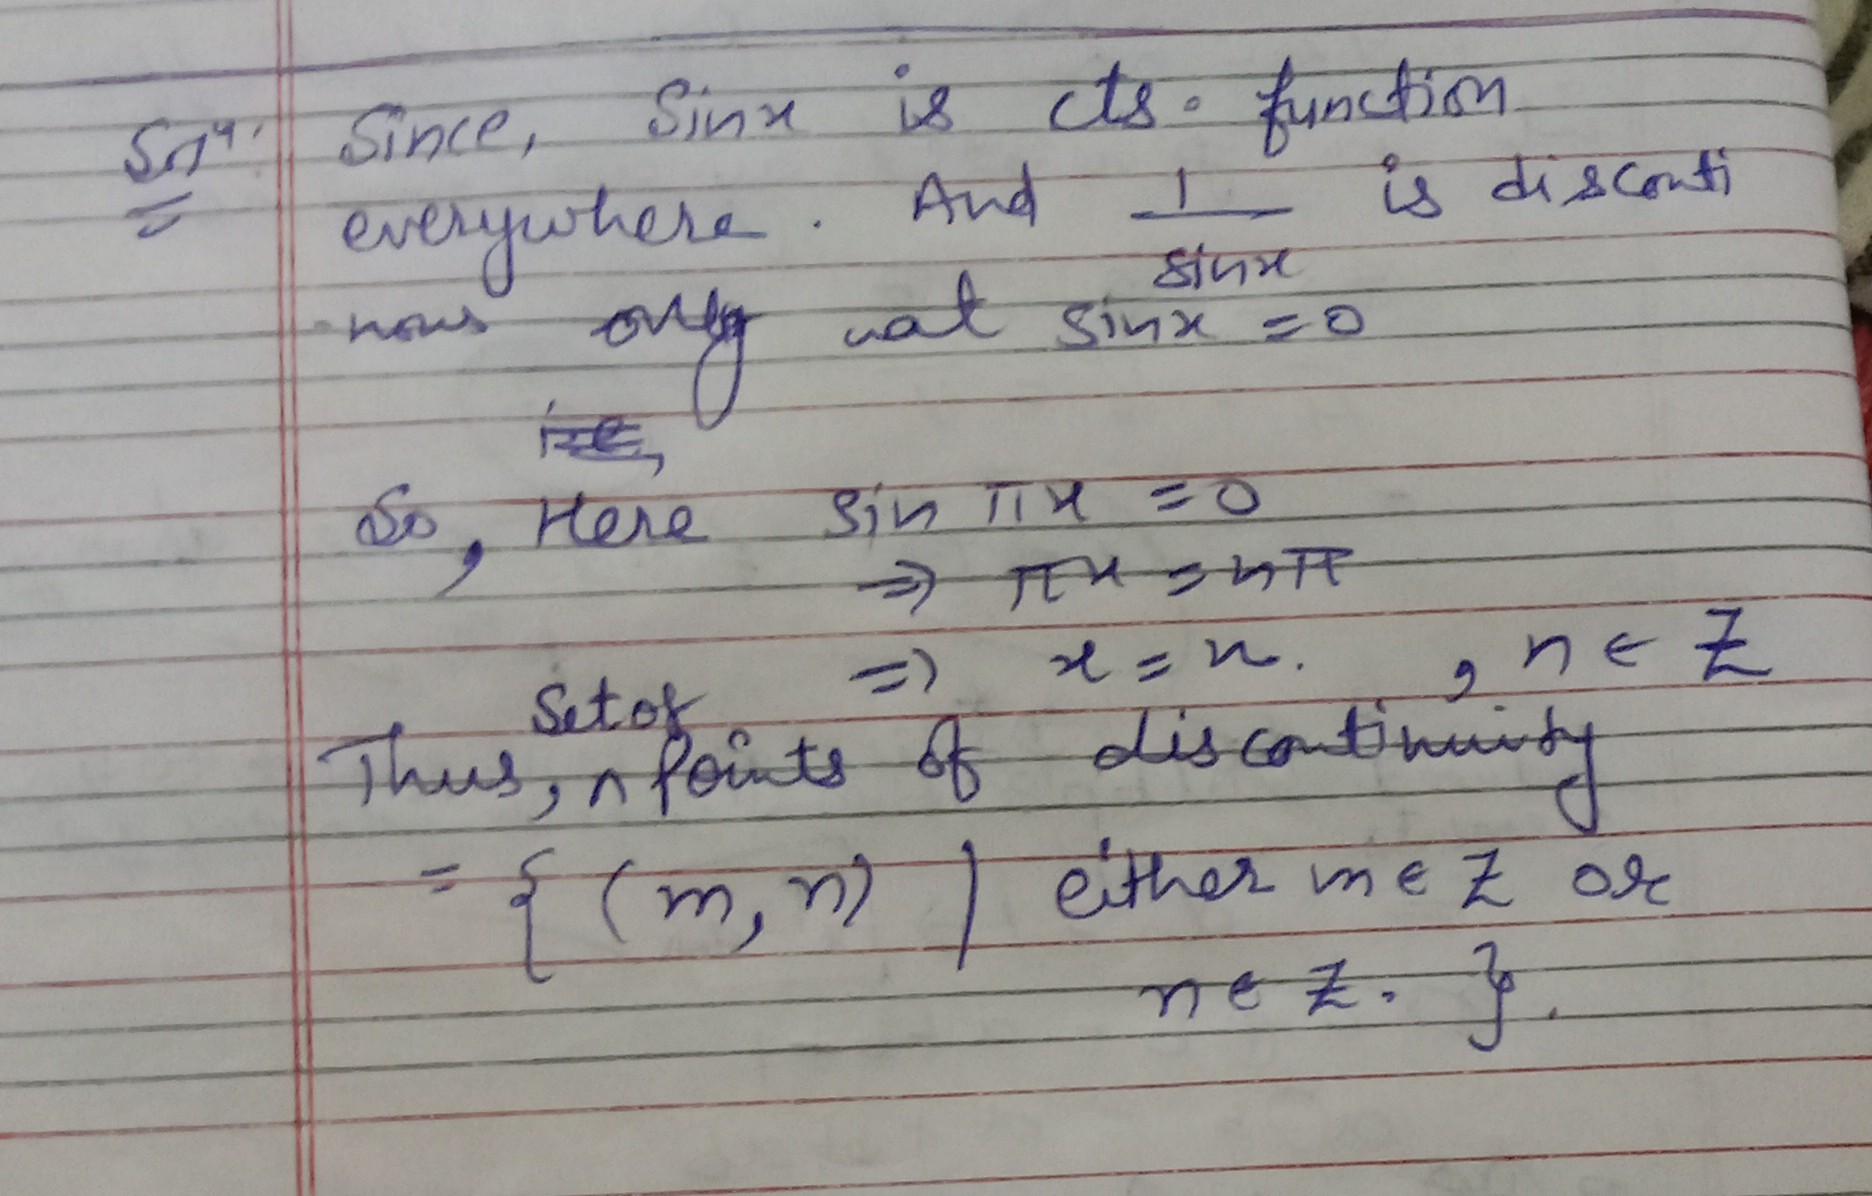 Soln. Since, Sinx is cts. function
everywhere. And 1/sinx is disconti
nous only at sinx = 0
So, Here Sin πx = 0
⇒ πx = nπ
⇒ x = n. , n ∈ Z
Set of
Thus, ^ Points of discontinuity
= { (m, n) | either m ∈ Z or
n ∈ Z. }.